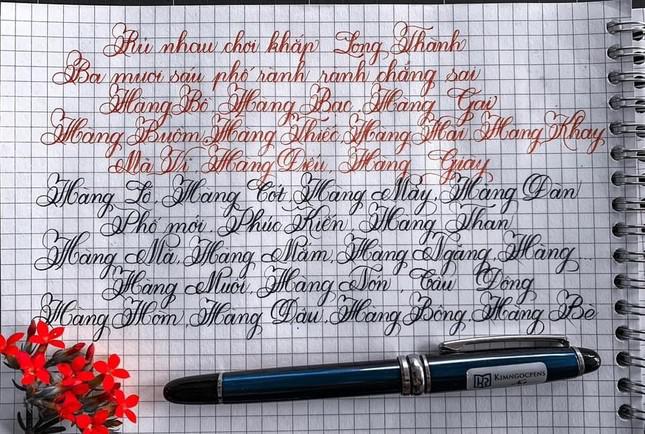 Rủ nhau chơi khắp Long Thành
Ba mươi sáu phố rành rành chẳng sai
Hàng Bồ, Hàng Bạc, Hàng Gai
Hàng Buồm, Hàng Thiếc, Hàng Hài, Hàng Khay
Mã Vĩ, Hàng Điếu, Hàng Giày
Hàng Lờ, Hàng Cót, Hàng Mây, Hàng Đàn
Phố mới, Phúc Kiến, Hàng Than
Hàng Mã, Hàng Mắm, Hàng Ngang, Hàng
Hàng Muối, Hàng Nón, Cầu Đông
Hàng Hòm, Hàng Đậu, Hàng Bông, Hàng Bè
KIMNGOCPENS